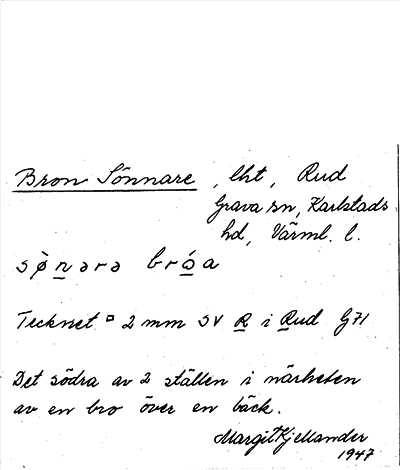 Bron Sönnare, lht, Rud
Grava sn, Karlstads
hd, Värml. l.
sø̀n̲ərə bró̲a
Tecknet ▫ 2 mm SV R̲ i R̲ud G71
Det södra av 2 ställen i närheten
av en bro över en bäck.
Margit Kjellander
1947